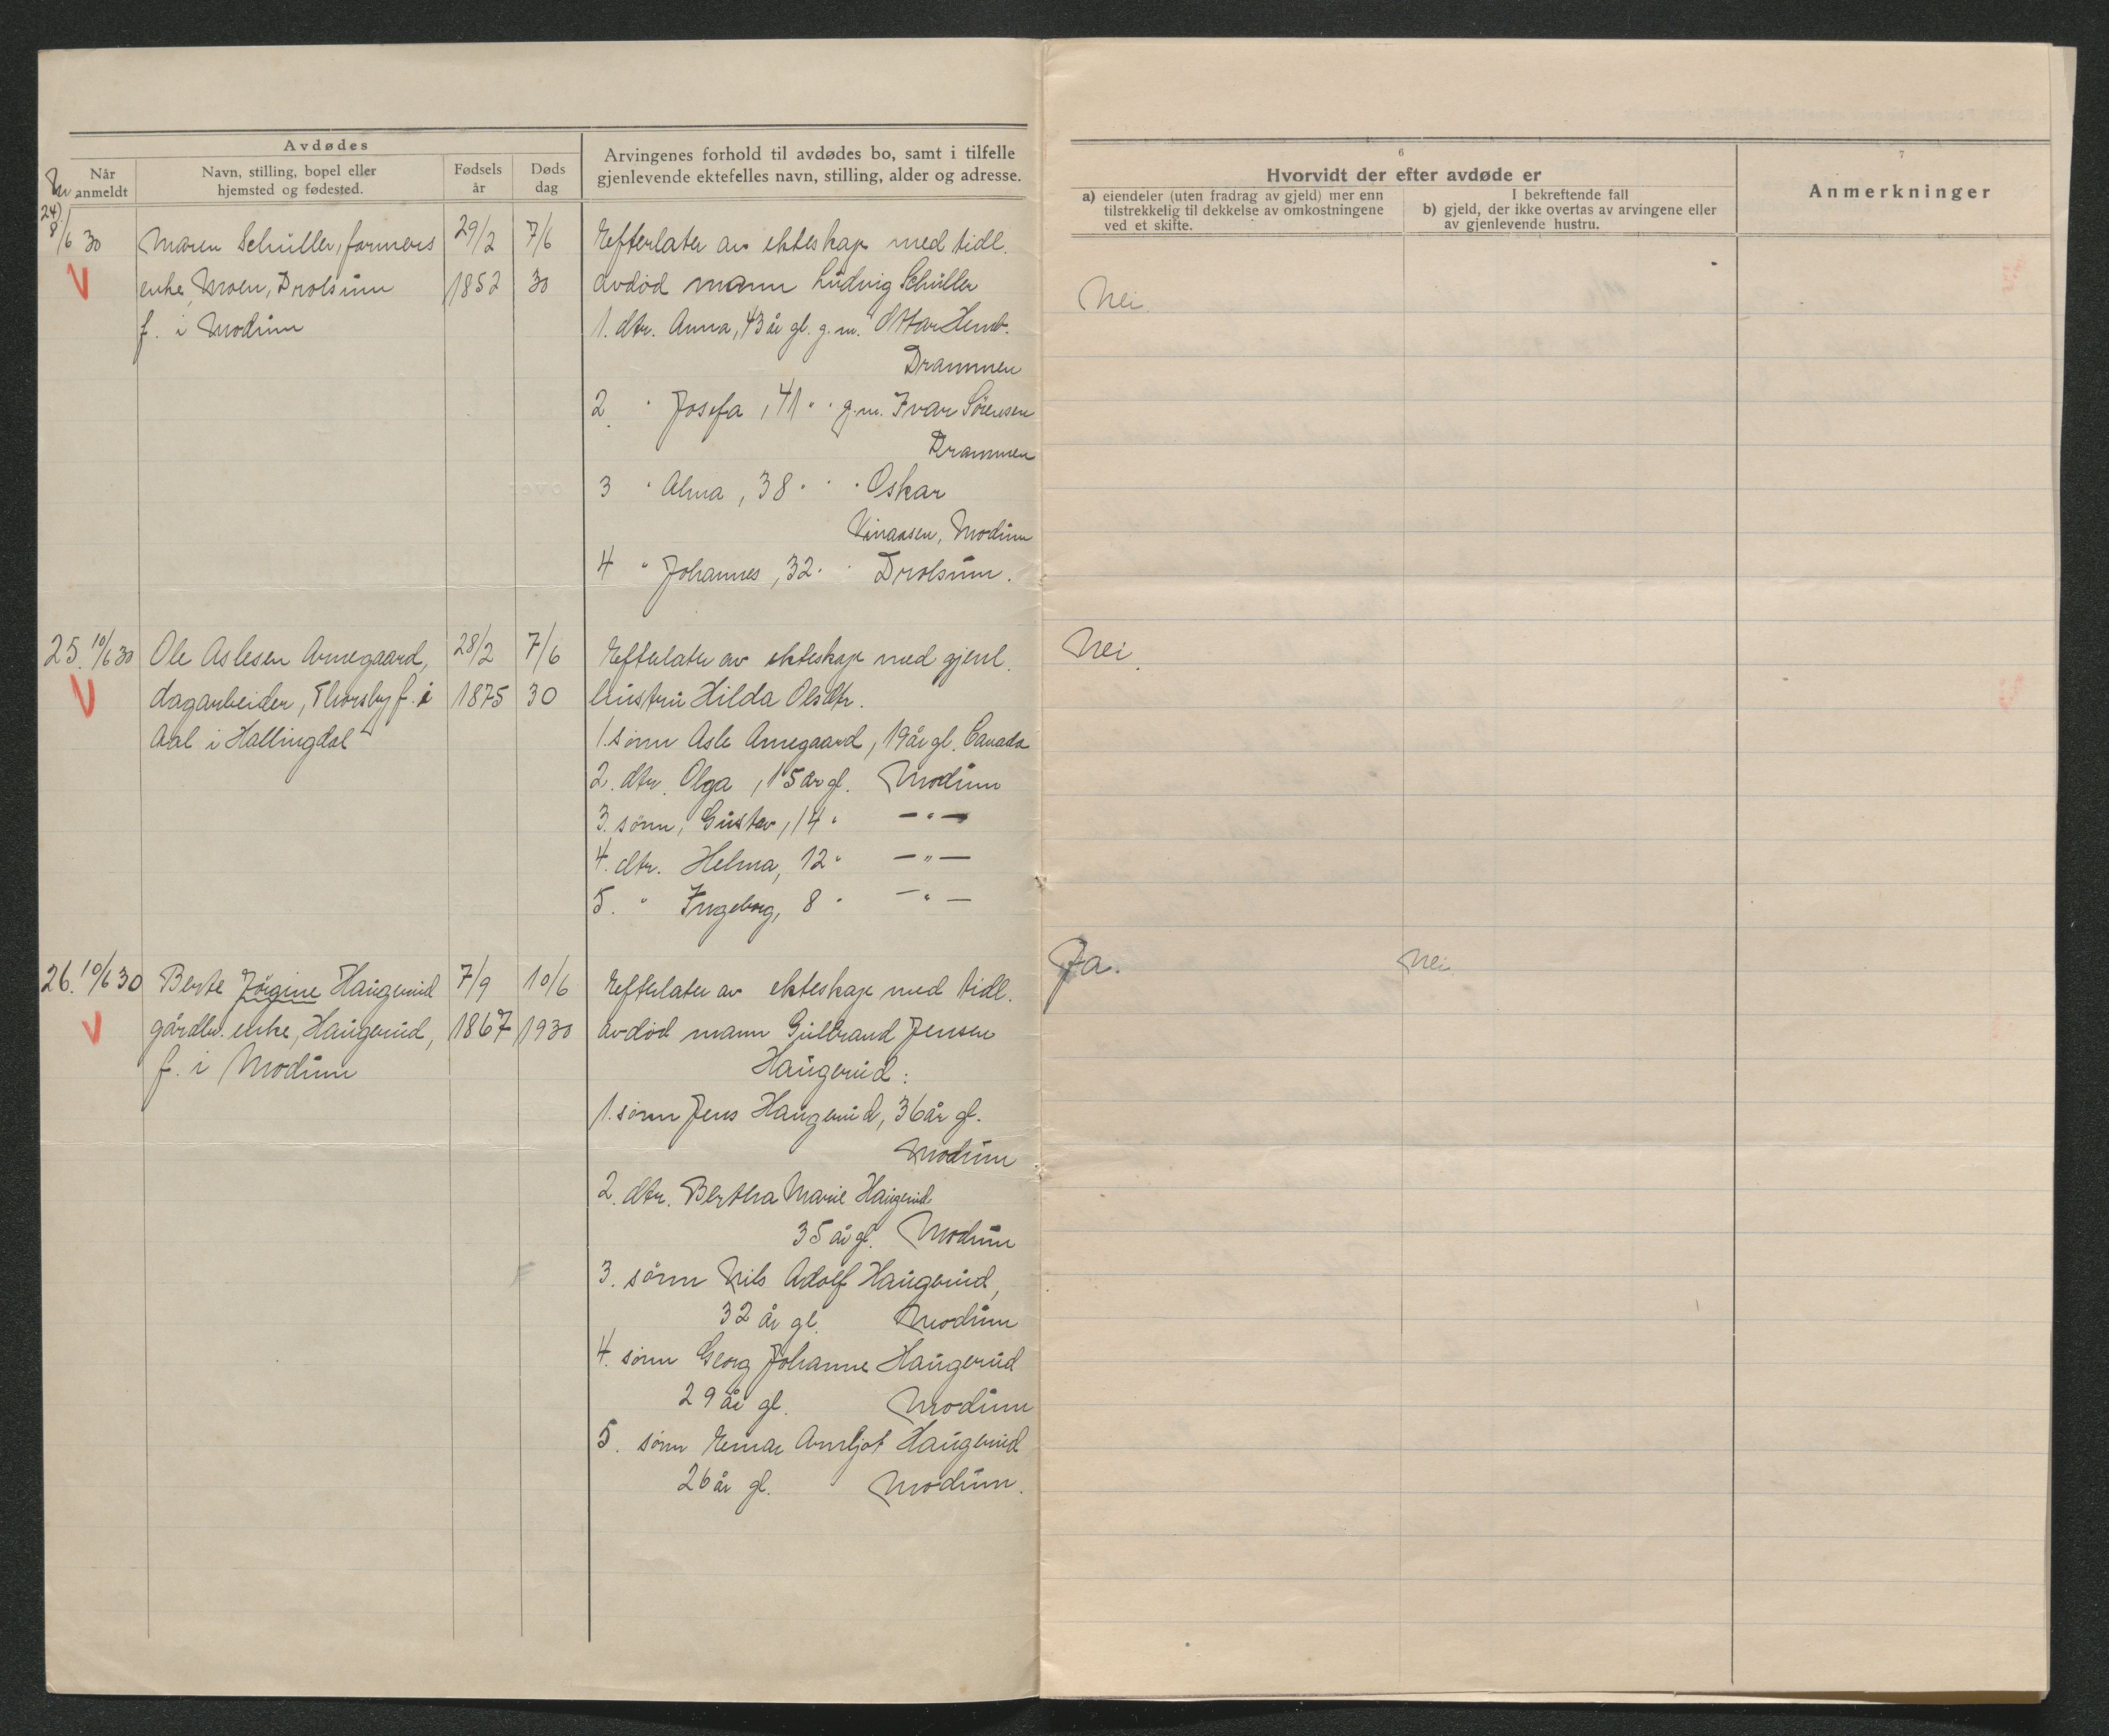 Avdødes
Når anmeldt
Navn, stilling, bopel eller
hjemsted og fødested.
Fødsels
år
Døds
dag
Arvingenes forhold til avdødes bo, samt i tilfelle
gjenlevende ektefelles navn, stilling, alder og adresse.
6
Hvorvidt der efter avdøde er
a) eiendeler (uten fradrag av gjeld) mer enn
tilstrekkelig til dekkelse av omkostningene
ved et skifte.
I bekreftende fall
b) gjeld, der ikke overtas av arvingene eller
av gjenlevende hustru.
7
Anmerkninger
24)
8/6 30 Maren Schüller, farmers 29/2 7/6 Efterlater av ekteskap med tidl.
V enke, Moen, Drolsum 1852 30 avdød mann Ludvig Schüller Nei
f. i Modum 1. dtr. Anna, 43 år gl. g.m. Ottar
Drammen
2. " Josefa, 41 " " g.m. Ivar Sørensen
Drammen
3 " Alma, 38 " " " Oskar
Modum
4 " Johannes, 32 " " Drolsum.
25. 10/6 30 Ole Aslesen Arnegaard, 28/2 7/6 Efterlater av ekteskap med gjenl. Nei.
V dagarbeider, Thorsby f. i 1875 30 hustru Hilda Olsdtr.
Aal i Hallingdal 1. sønn Asle Arnegaard, 19 år gl. Canada
2. dtr. Olga, 15 år gl. Modum
3. sønn, Gustav, 14 " — " —
4. dtr. Helma, 12 " — " —
5. " Ingeborg, 8 " — " —
26. 10/6 30 Berte Jörgine Haugerud 7/9 10/6 Efterlater av ekteskap med tidl. Ja. Nei.
V gårdbr. enke, Haugerud, 1867 1930 avdød mann Gulbrand Jensen
f. i Modum Haugerud:
1. sønn Jens Haugerud, 36 år gl.
Modum
2. dtr. Bertha Marie Haugerud
35 år gl. Modum
3. sønn Nils Adolf Haugerud,
32 år gl. Modum
4. sønn Georg Johanne Haugerud
29 år gl. Modum
5. sønn Einar Arnljot Haugerud
26 år gl. Modum.